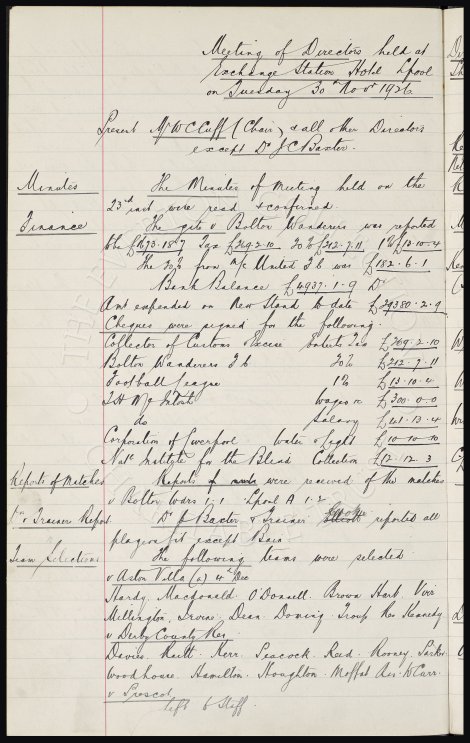 Meeting of Directors held at
Exchange Station Hotel Lpool
on Tuesday 30th Novr 1926
Present Mr W C Cuff (Chair) & all other Directors
except Dr J C Baxter.
Minutes
The Minutes of Meeting held on the
23rd inst were read & confirmed.
Finance
The gate v Bolton Wanderers was reported
to be £1673.18.7 Tax £269.2.10 20% £212.7.11 1% £13.10.4
The 20% from N/c United F b was £182.6.1
Bank Balance £4937.1.9 Dr
Amt expended on New Stand to date £29380.2.9
Cheques were signed for the following.
Collector of Customs & Excise Entets Tax £269.2.10
Bolton Wanderers F b 20% £212.7.11
Football League 1% £13.10.4
T H McIntosh wages &c £300.0.0
do Salary £41.13.4
Corporation of Liverpool Water & Light £10.10.10
Natl Institute for the Blind Collection £12.12.3
Reports of Matches
Reports were received of the matches
v Bolton Wdrs 1.1 Lpool A 1.2
Dr & Trainers Report
Dr J Baxter & Trainer reported all
players fit except Bain
Team Selections
The following teams were selected
v Aston Villa (a) 4th Dec
Hardy. Macdonald O'Donnell. Brown Hart. Virr
Millington, Irvine. Dean. Troup Res Kennedy
v Derby County Res.
Davies. Raitt. Kerr. Peacock. Reid. Rooney. Parker
Woodhouse. Hamilton. Houghton. Moffat Res. W Carr.
v Prescot
left to Staff.